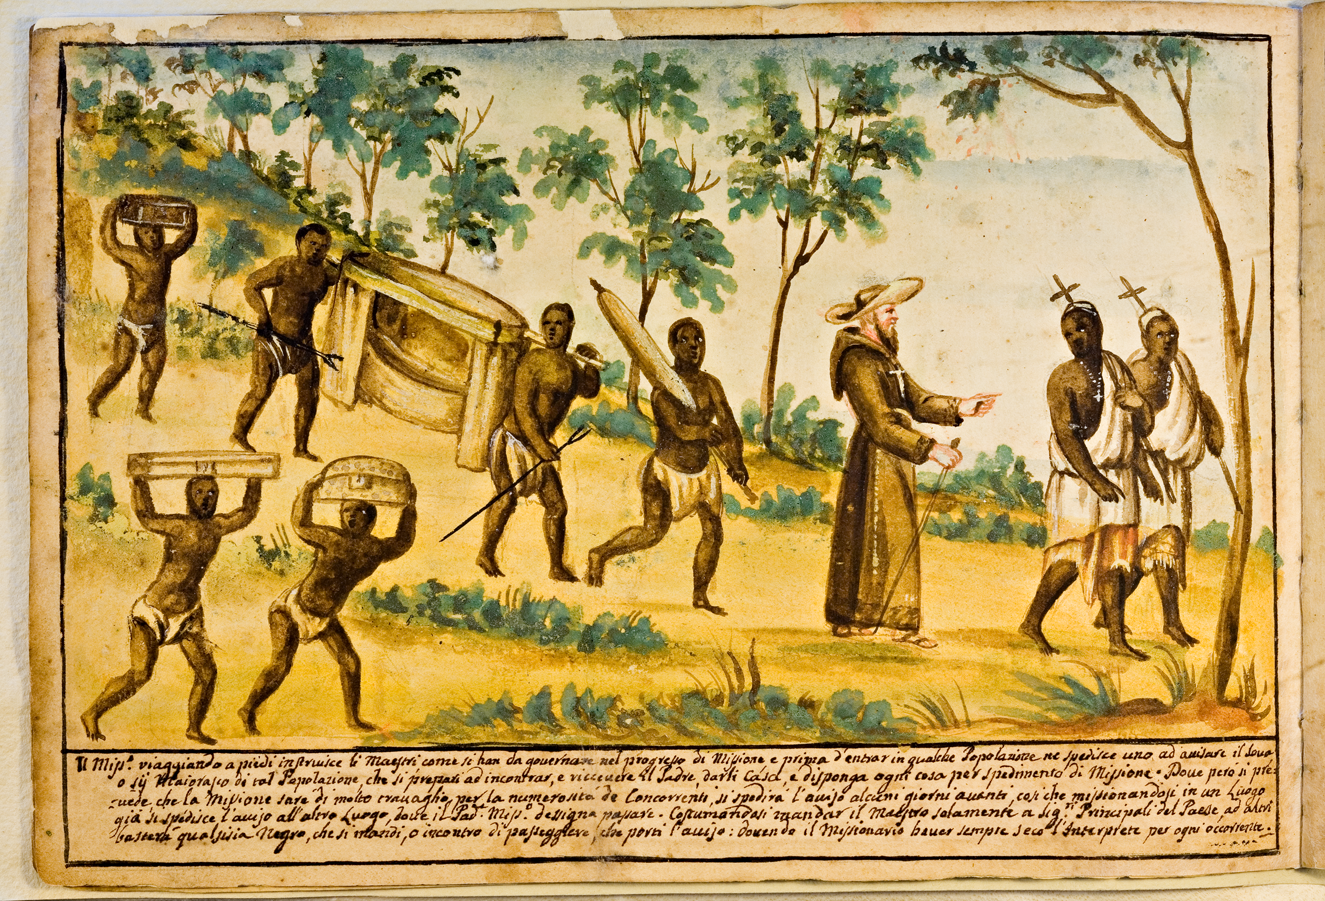 Il Miss.º viaggiando a piedi instruisce li Maestri come si han da governare nel progresso di Missione e prima d'entrar in qualche Popolazione ne spedisce uno ad avisare il Sova
o sij Maiorasco di tal Popolazione, che si prepari ad incontrar, e riccevere il Padre, darli Casa, e disponga ogni cosa per spedimento di Missione. Dove però si pre-
-vede, che la Missione sarà di molto travaglio, per la numerosità de Concorrenti, si spedirà l'aviso alcuni giorni avanti, così che missionandosi in un Luogo
già si spedisce l'aviso all'altro Luogo, dove il Pad.ᵉ Miss.º designa passare. Costumandosi mandar il Maestro solamente a Sig.ʳⁱ Principali del Paese, ad altri
basterà qualsisia Negro, che si mandi, o incontro di passeggiere, che porti l'aviso: dovendo il Missionario haver sempre seco l'Interprete per ogni occorrente.